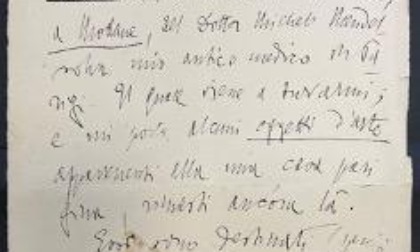 a Modane, del Dottor Michele Mendel
mio antico medico di Pa
rigi. Il quale viene a curarmi;
e mi porta alcuni oggetti d'arte
appartenenti alla mia casa pari
gina, rimasti ancora là.
Essi sono destinati